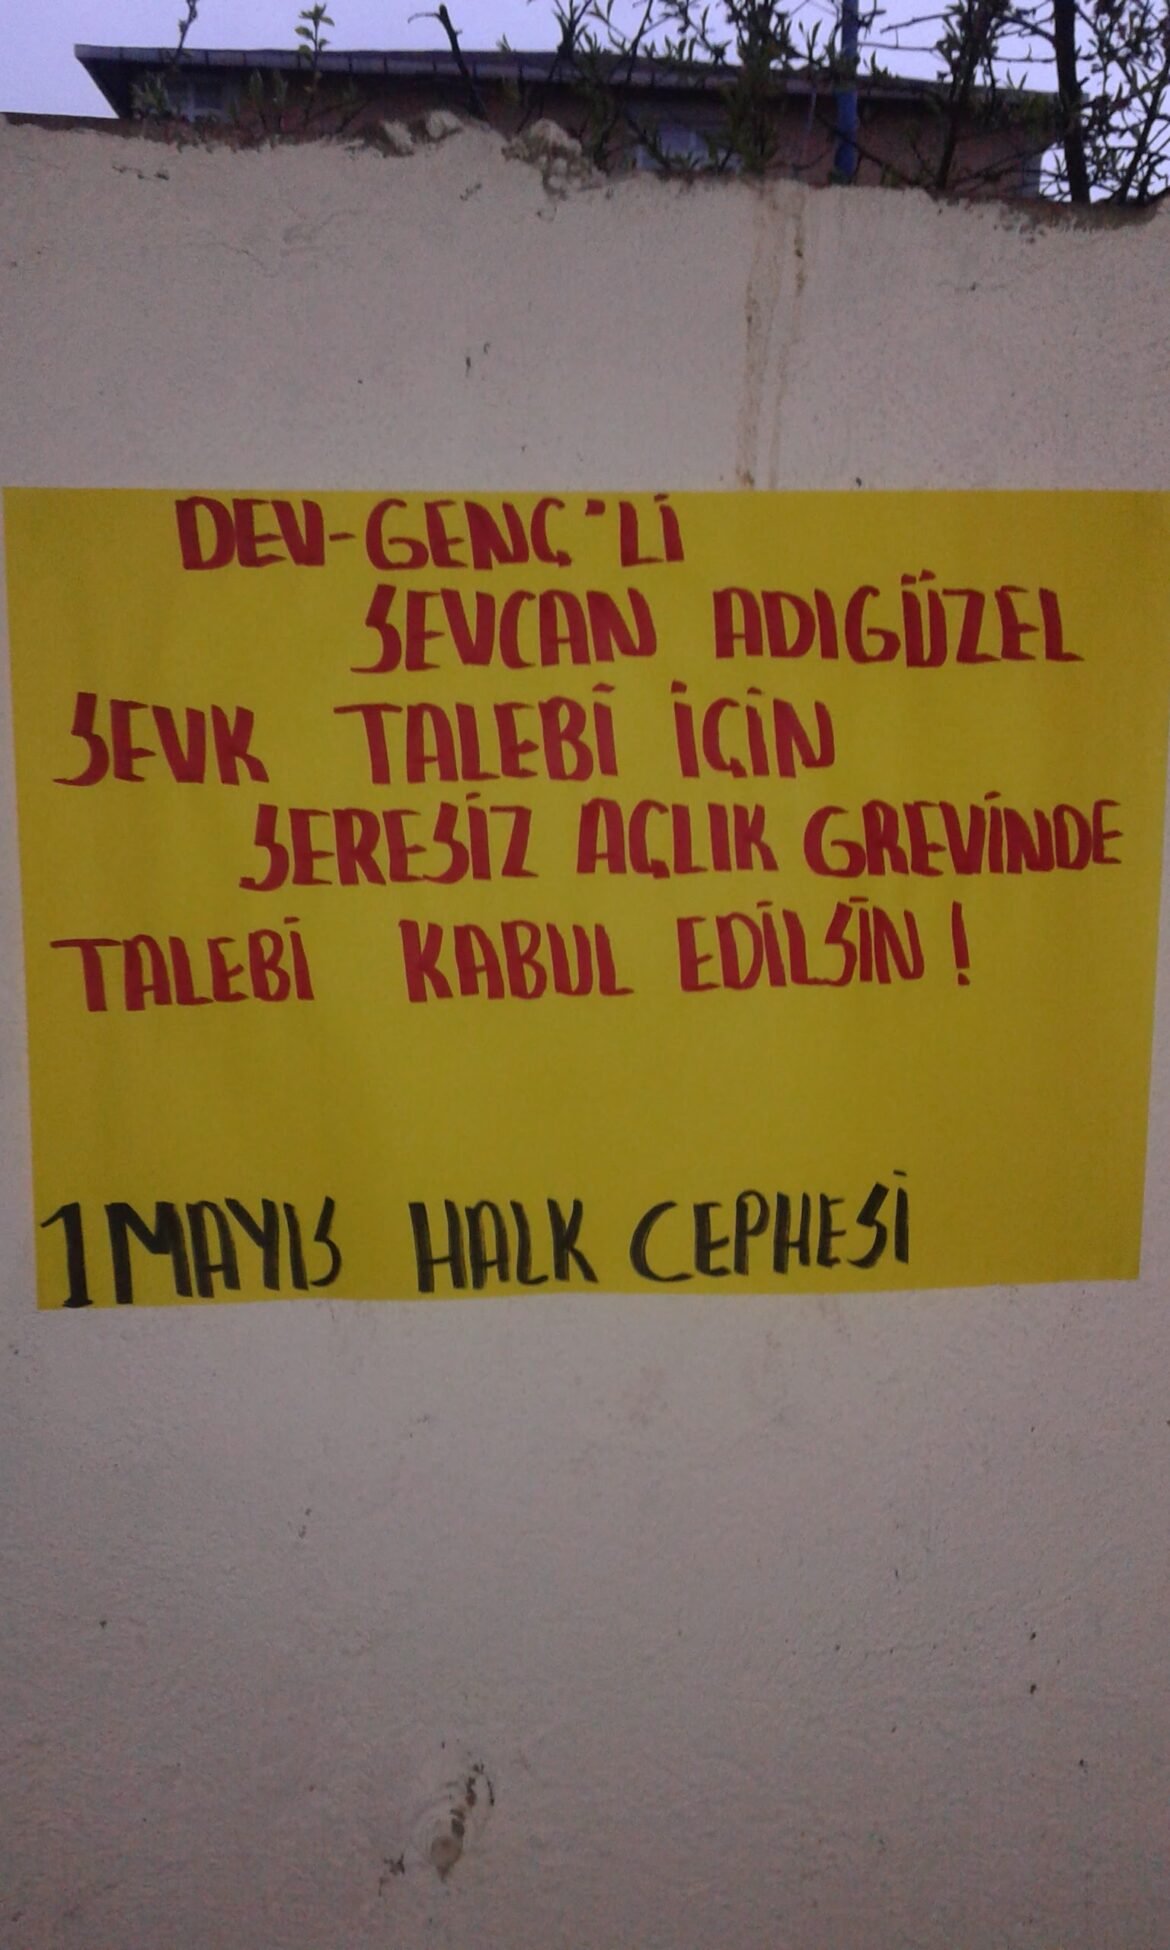 DEV-GENÇ'Lİ
SEVCAN ADIGÜZEL
SEVK TALEBİ İÇİN
SERESİZ AÇLIK GREVİNDE
TALEBİ KABUL EDİLSİN!
1 MAYIS HALK CEPHESİ